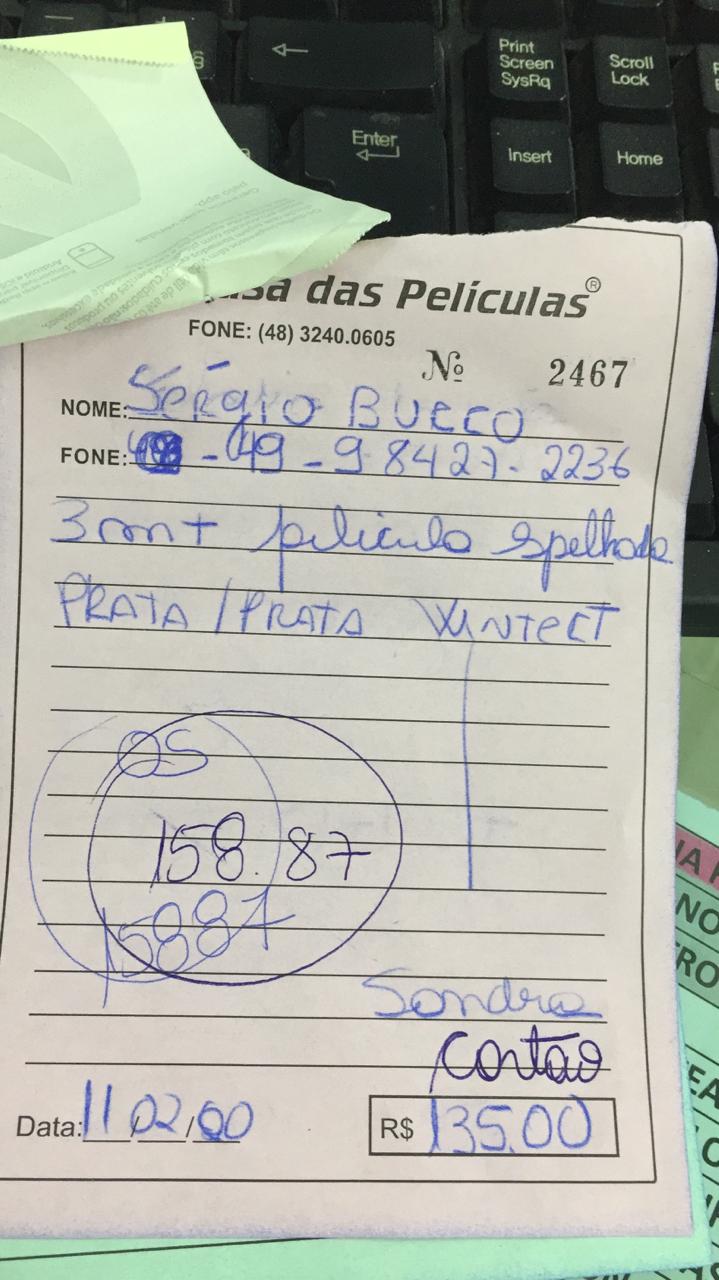 Print
Screen
SysRq
Scroll
Lock
Enter
Insert
Home
das Películas®
FONE: (48) 3240.0605
Nº 2467
NOME: Sérgio BUCCO
FONE: -49-98427-2236
3 mt pelicula Espelhada
PRATA / PRATA WINTECT
OS
158.87
15887
Sandra
Cartão
Data: 11/02/
R$ 135,00